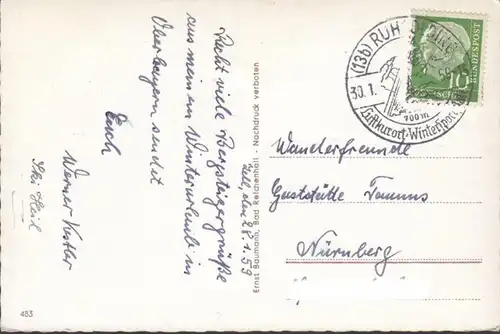 Zell, den 28.1.59
Recht viele Bergsteigergrüße
aus meinem Winterurlaub in
Oberbayern sendet
Euch
Werner
Ski Heil
483
Ernst Baumann, Bad Reichenhall - Nachdruck verboten
(13b) RUH
30.1.
700 m
Luftkurort-Wintersport
10
BUNDESPOST
Wanderfreunde
Gaststätte Taunus
Nürnberg